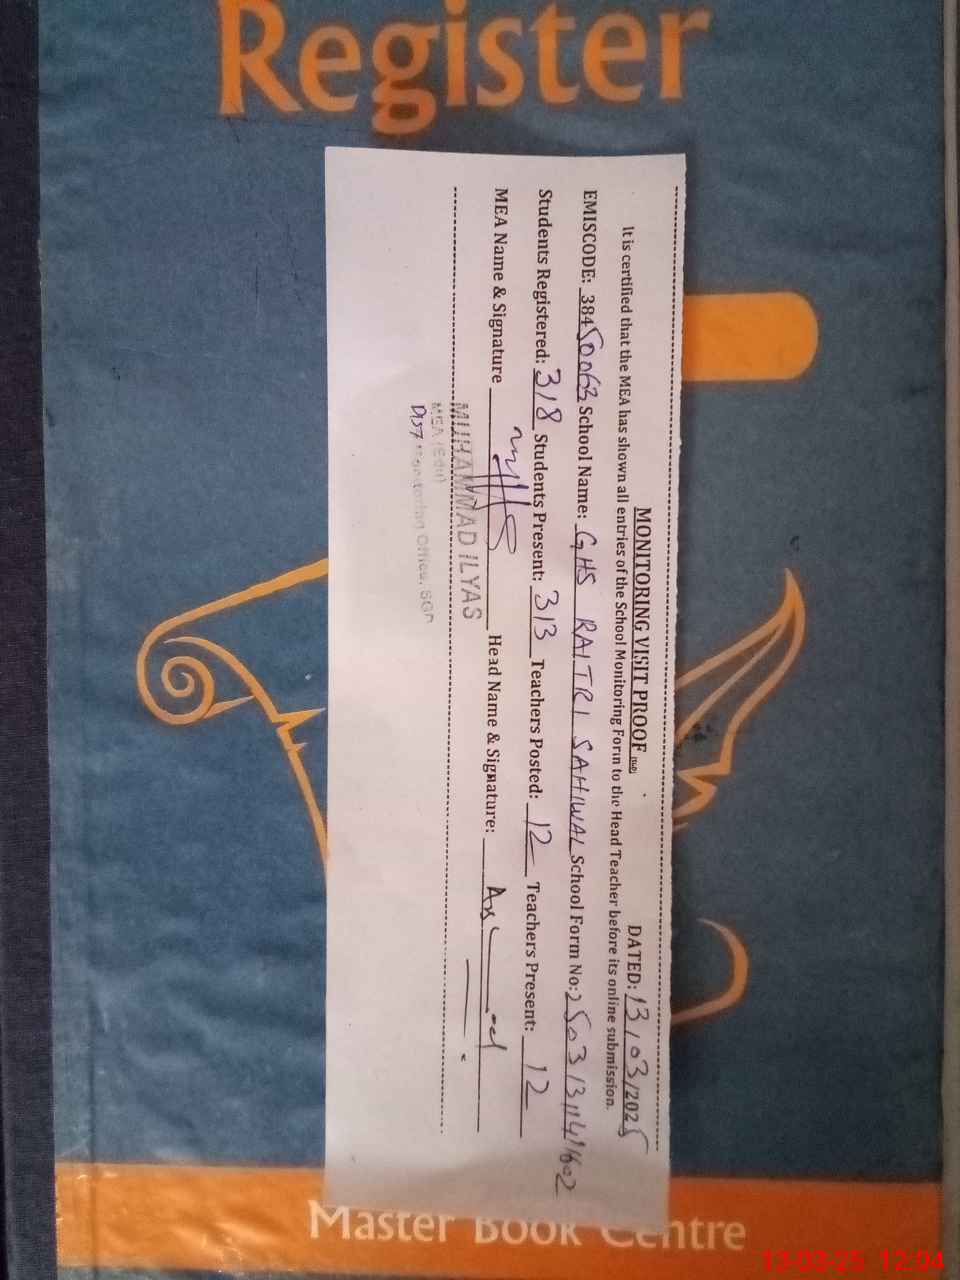 Register
MONITORING VISIT PROOF
DATED: 13/03/2025
It is certified that the MEA has shown all entries of the School Monitoring Form to the Head Teacher before its online submission.
EMISCODE: 38450063 School Name: GHS RAITRI SAHIWAL School Form No: 25031311411602
Students Registered: 318 Students Present: 313 Teachers Posted: 12 Teachers Present: 12
MEA Name & Signature Head Name & Signature:
MUHAMMAD ILYAS
MEA (Edu)
DIST Monitoring Office, SGD
Master Book Centre
13-03-25 12:04